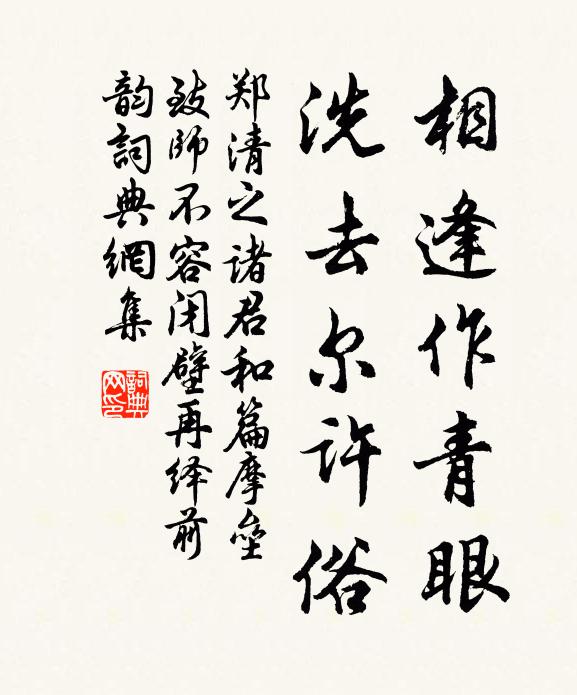 相逢作青眼
洗去尔许俗
郑清之诸君和篇摩垒
致师不容闭壁再绎前
韵詞典網集
詞典
网印